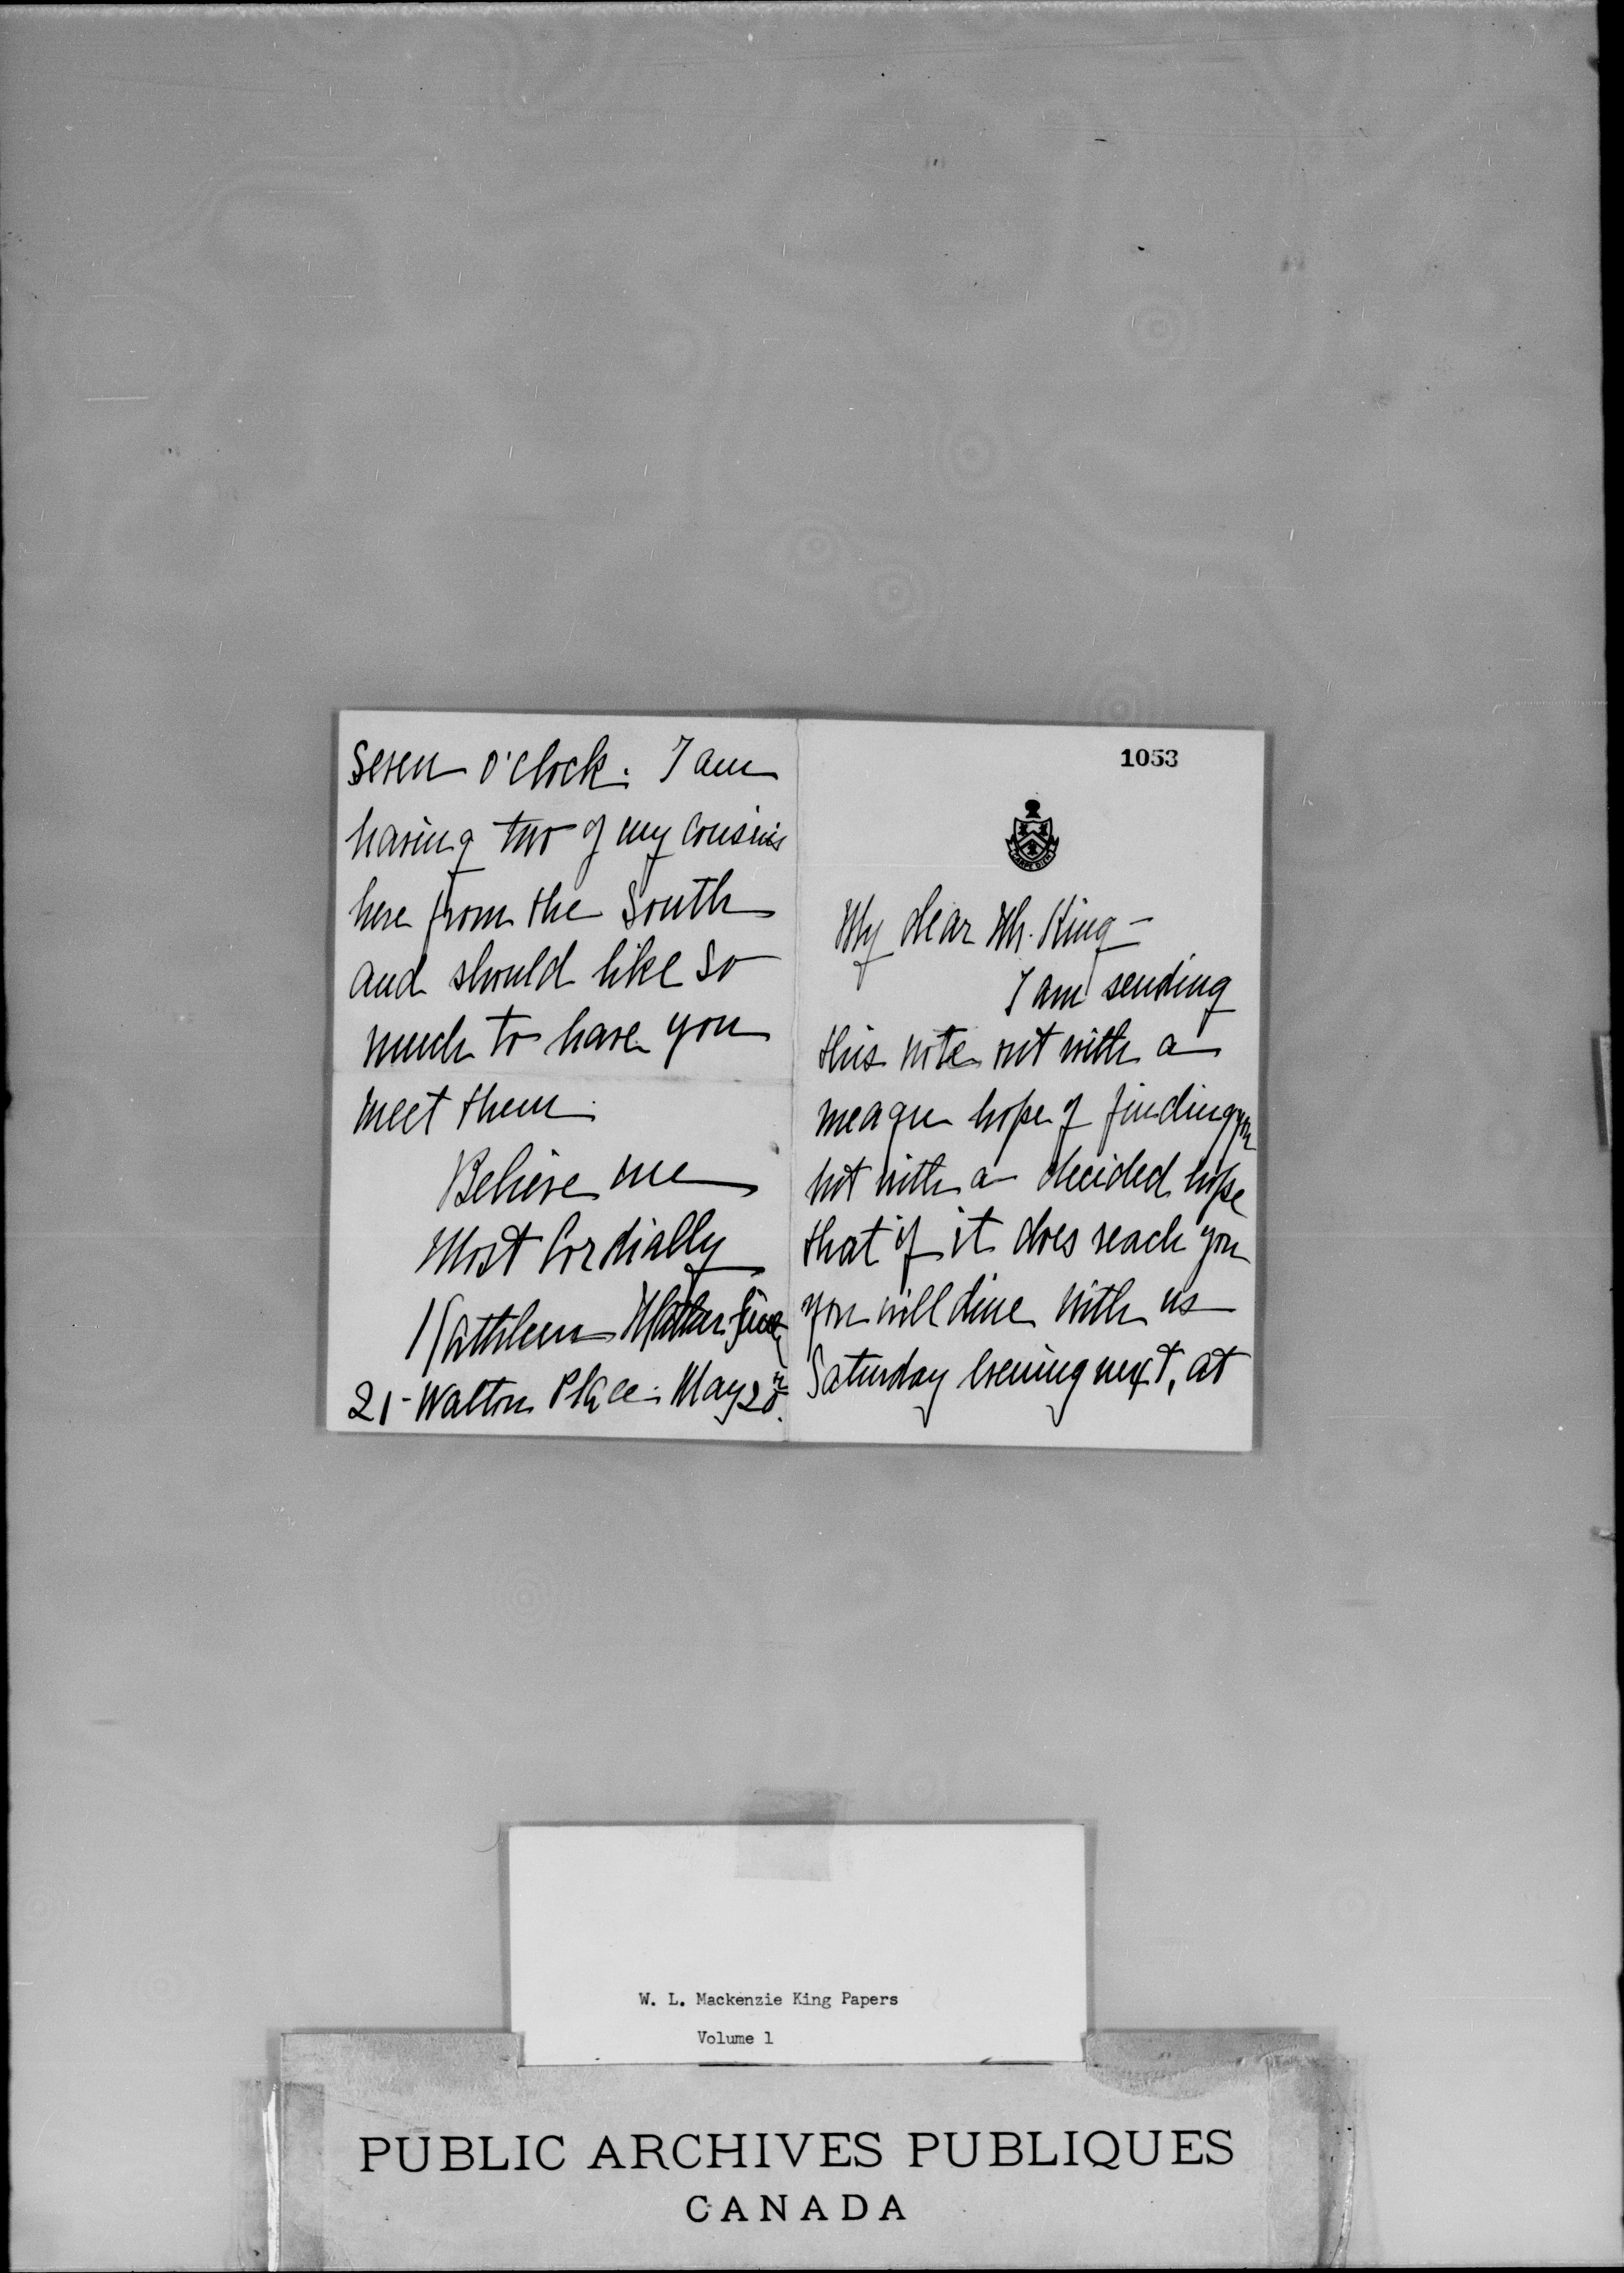 1053
CARPE DIEM
My dear Mr. King —
I am sending
this note out with a
meagre hope of finding you
but with a decided hope
that if it does reach you
you will dine with us
Saturday evening next, at
seven o'clock. I am
having two of my cousins
here from the South
and should like so
much to have you
meet them.
Believe me
Most Cordially
Kathleen
21 - Walton Place. May
W. L. Mackenzie King Papers
Volume 1
PUBLIC ARCHIVES PUBLIQUES
CANADA